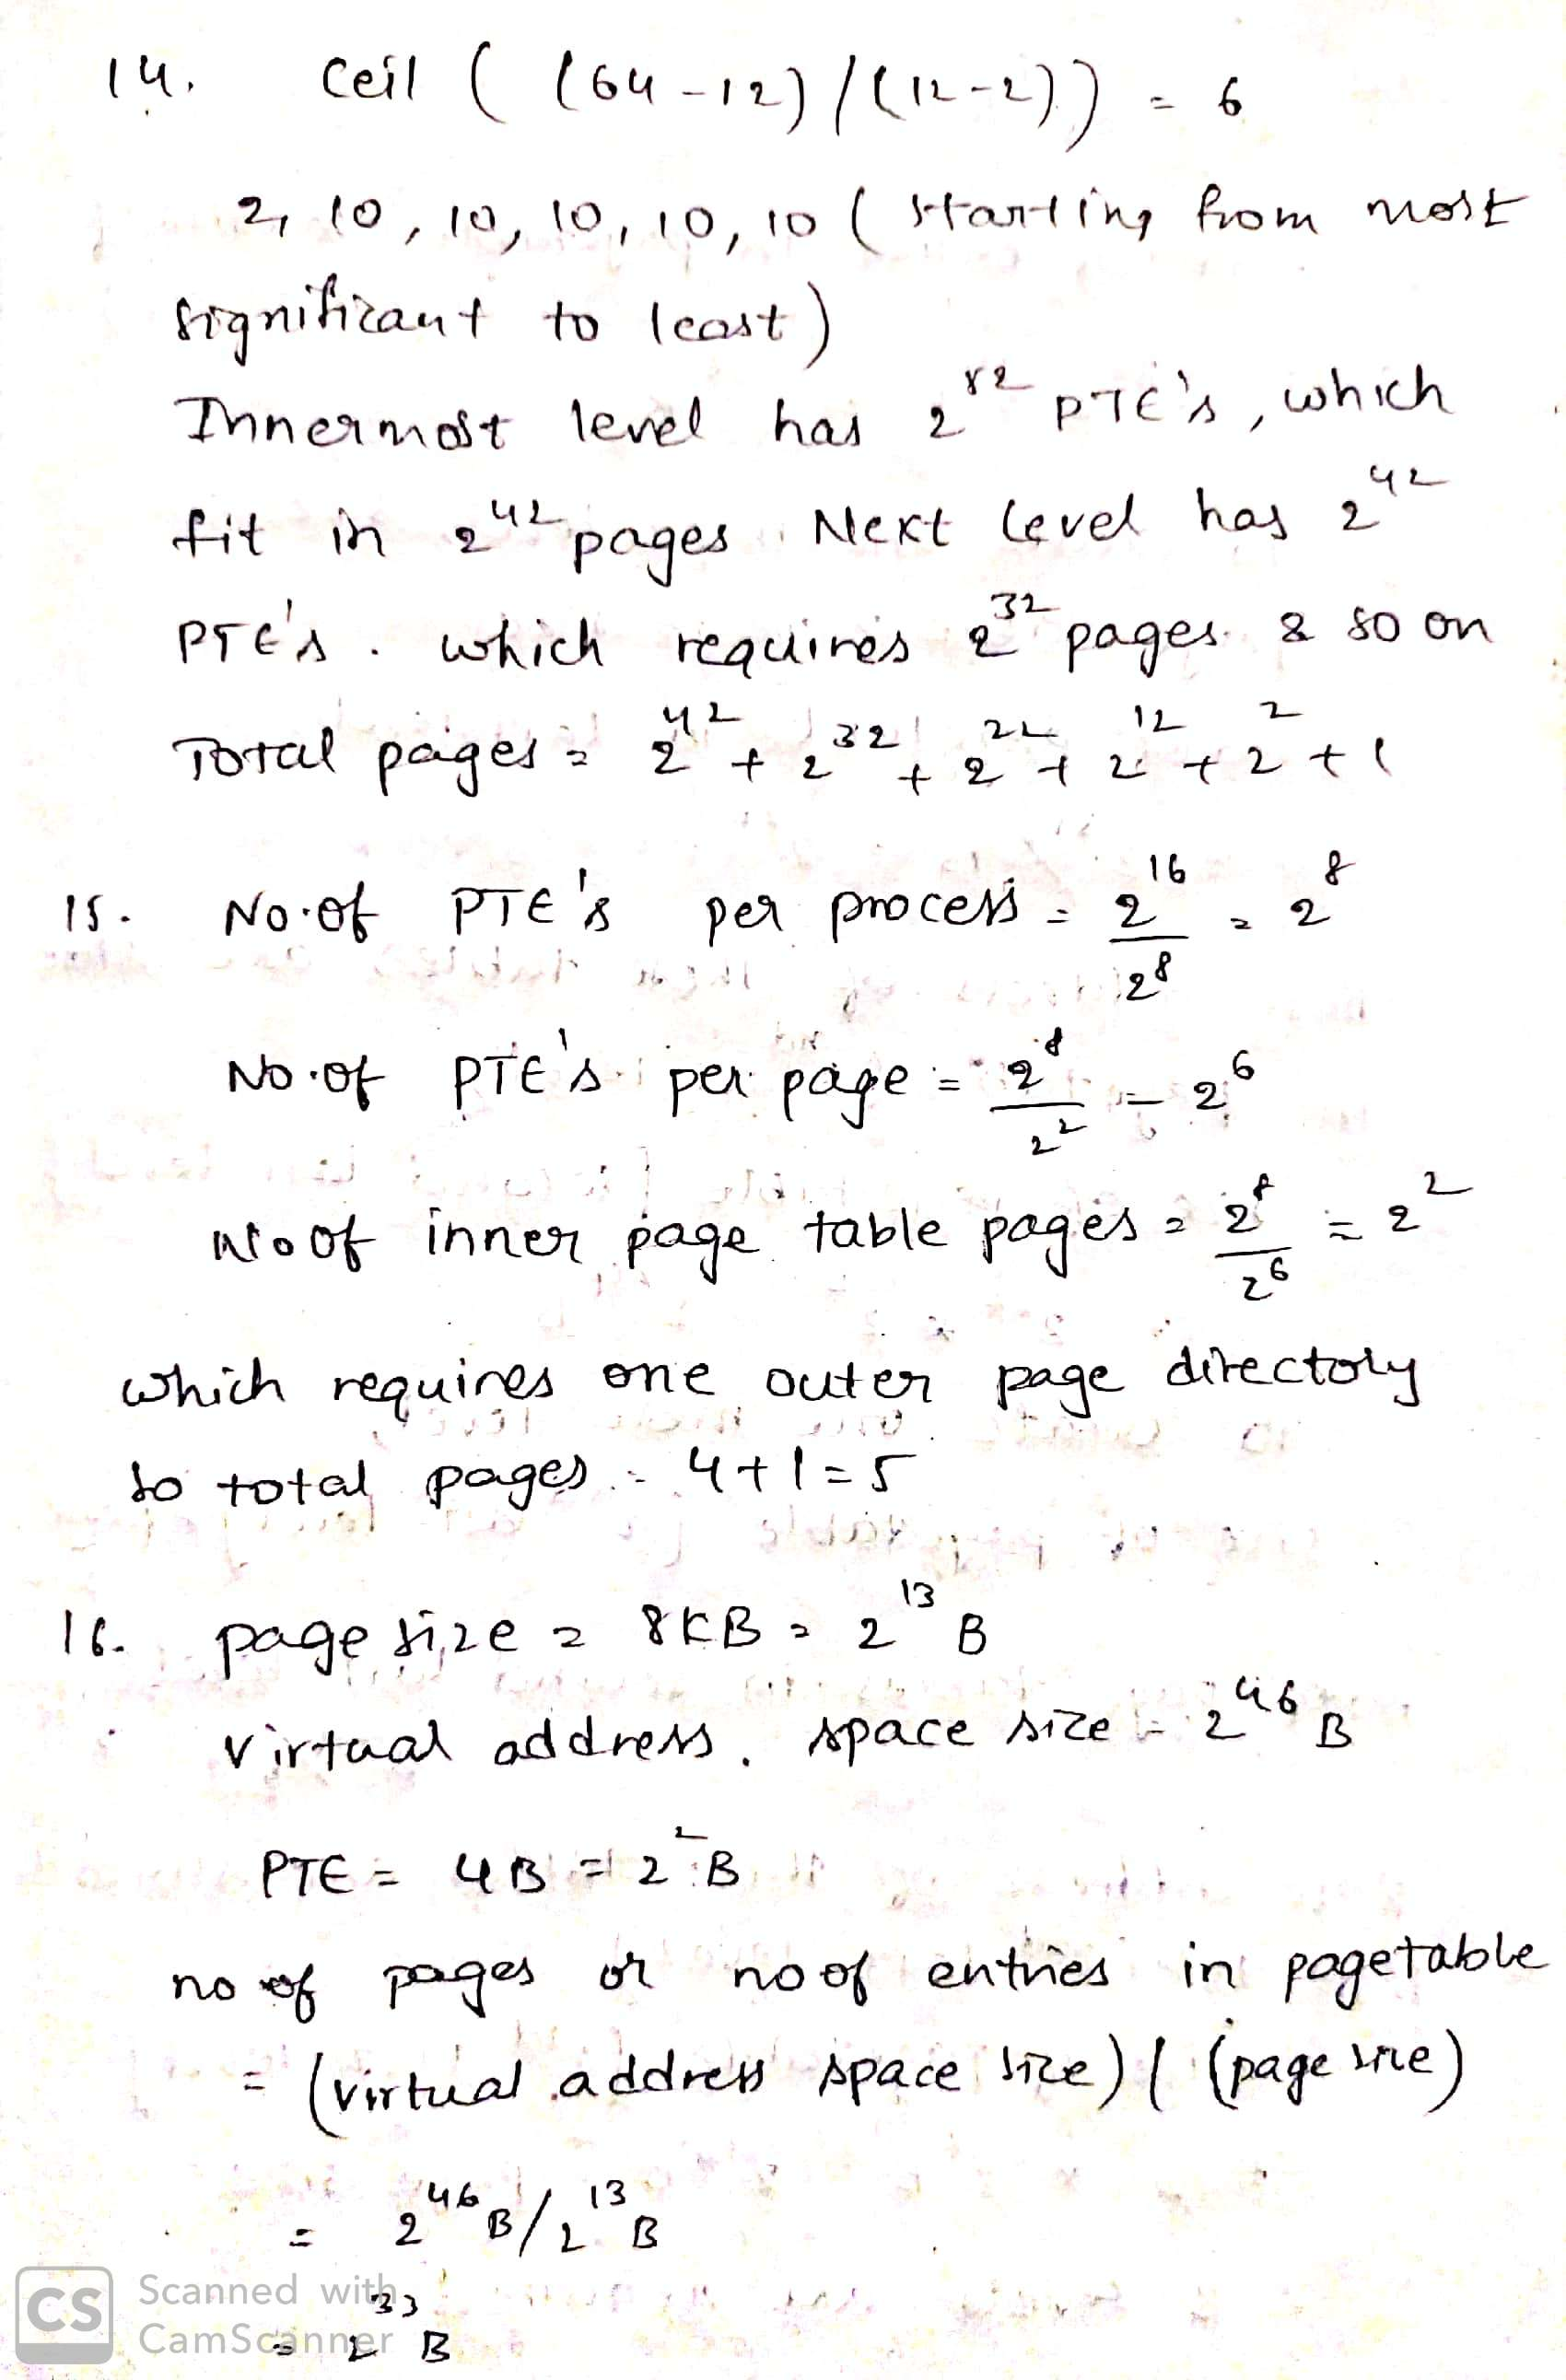 14. Ceil ( (64-12)/(12-2)) = 6
2, 10, 10, 10, 10, 10 ( starting from most
significant to least)
Innermost level has 2^52 PTE's, which
fit in 2^42 pages. Next level has 2^42
PTE's. which requires 2^32 pages & so on
Total pages = 2^42 + 2^32 + 2^22 + 2^12 + 2^2 + 1
15. No.of PTE's per process = 2^16/2^8 = 2^8
No.of PTE's per page = 2^8/2^2 = 2^6
No of inner page table pages = 2^8/2^6 = 2^2
which requires one outer page directory
so total pages = 4+1=5
16. page size = 8KB = 2^13 B
virtual address space size = 2^46 B
PTE = 4B = 2^2 B
no of pages or no of entries in pagetable
= (virtual address space size) / (page size)
= 2^46 B/2^13 B
= 2^33 B
CS Scanned with
CamScanner